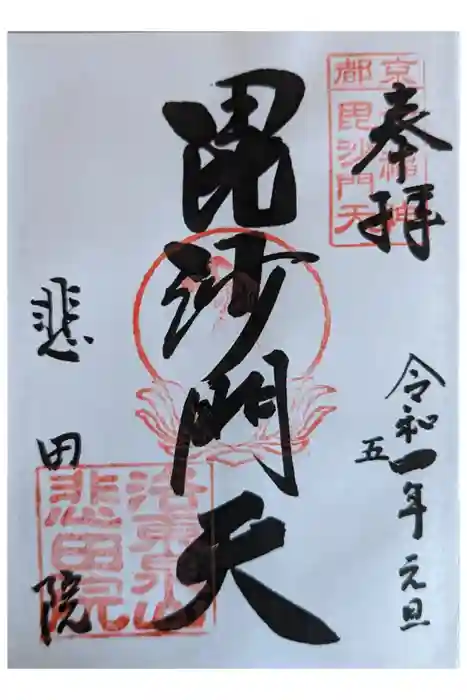 奉拝
京都
福神
毘沙門天
毘沙門天
令和一年元旦
五
悲田院
洛東泉山
悲田院